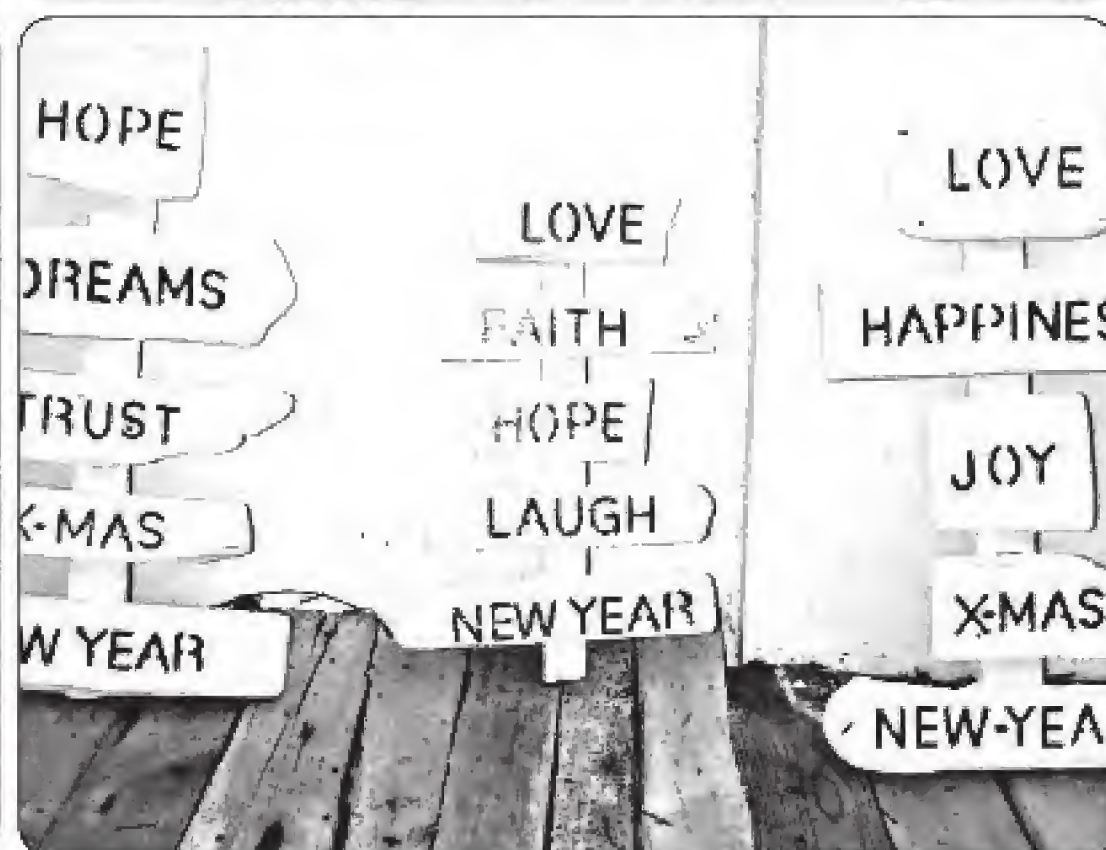 HOPE
DREAMS
TRUST
X-MAS
W YEAR
LOVE
FAITH
HOPE
LAUGH
NEW YEAR
LOVE
HAPPINES
JOY
X-MAS
NEW-YEA